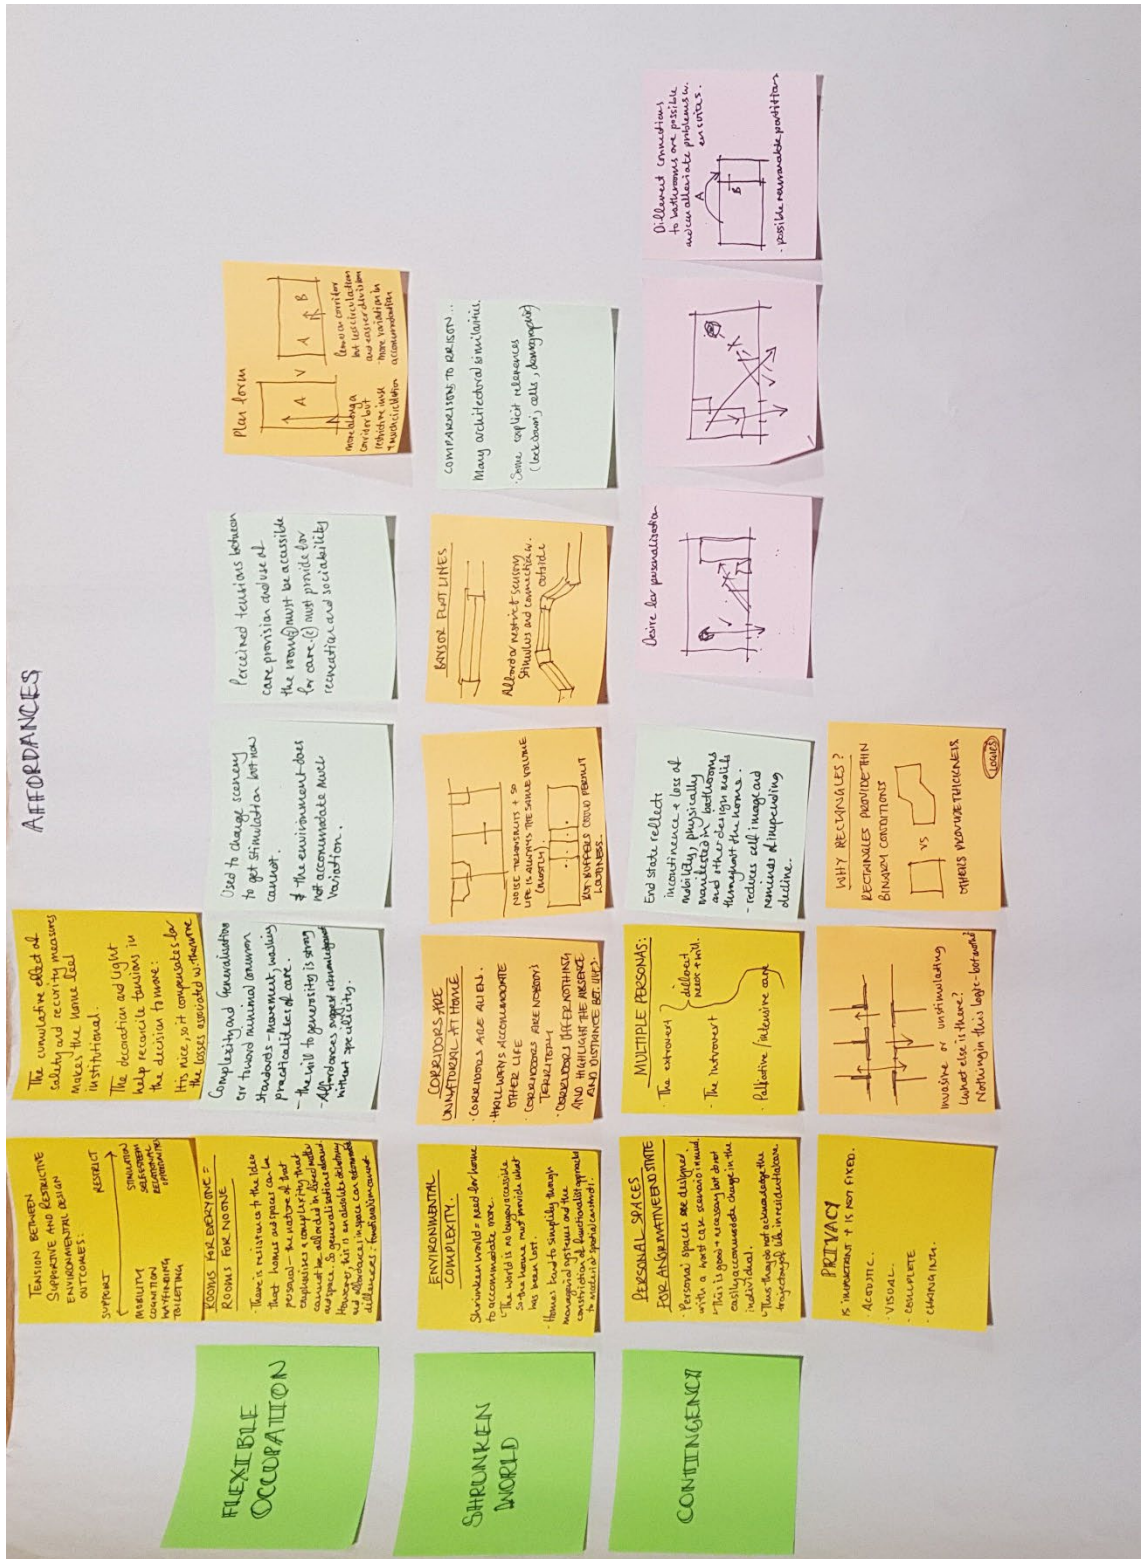 AFFORDANCES
FLEXIBLE
OCCUPATION
TENSION BETWEEN
SUPPORTIVE AND RESTRICTIVE
ENVIRONMENTAL DESIGN
OUTCOMES:
SUPPORT RESTRICT
MOBILITY STIMULATION
COGNITION SELF ESTEEM
WAYFINDING RELATIONAL
TOILETING OPPORTUNITIES
ROOMS FOR EVERYONE =
ROOMS FOR NO ONE
There is resistance to the idea
that homes and spaces can be
personal - the nature of that
emphasises a complexity that
cannot be afforded in fixed
and space. So generalisations abound.
However, this is an absolute
and affordances in space can
differences. Functionalism cannot.
The cumulative effect of
safety and security measures
makes the home feel
institutional.
The decoration and light
help reconcile tensions in
the decision to move:
It is nice, so it compensates for
the losses associated w. the move
Complexity and Generalisation
err toward minimal common
standards - movement, washing
practicalities of care.
- the will to generosity is strong
- Affordances suggest acknowledgement
without specificity.
Used to change scenery
to get stimulation but now
cannot.
& the environment does
not accommodate much
variation.
Perceived tensions between
care provision and use of
the room(s) must be accessible
for care. (c) must provide for
recreation and sociability
Plan form
A V A B
more along a
corridor but
restrictive in use
+ much circulation
less on corridor
but less circulation
and easier division
· more variation in
accommodation
SHRUNKEN
WORLD
ENVIRONMENTAL
COMPLEXITY.
Shrunken world = need for home
to accommodate more.
The world is no longer accessible
so the home must provide what
has been lost.
· Homes tend to simplify though
managerial systems and the
constriction of functionalist approach
to material spatial control.
CORRIDORS ARE
UNNATURAL AT HOME
· CORRIDORS ARE ALIEN.
· HALLWAYS ACCOMMODATE
OTHER LIFE
· CORRIDORS ARE NOBODY'S
TERRITORY
· CORRIDORS OFFER NOTHING
AND HIGHLIGHT THE ABSENCE
AND DISTANCE BET. LIVES.
NOISE TRANSMITS + SO
LIFE IS ALWAYS THE SAME VOLUME
(MOSTLY).
BUT BUFFERS COULD PERMIT
LOUDNESS.
BAYS OR FLAT LINES
Afford or restrict sensory
stimulus and connection w.
outside
COMPARRISONS TO PRISON...
Many architectural similarities.
· Some explicit references
(lockdown, cells, demographic)
CONTINGENCY
PERSONAL SPACES
FOR A NORMATIVE END STATE
· Personal spaces are designed
with a worst case scenario in mind.
This is good + necessary but do not
easily accommodate change in the
individual.
Thus they do not acknowledge the
trajectory of life in residential care
MULTIPLE PERSONAS:
· The extrovert
· The introvert
different
needs + will.
· Palliative / intensive care
End state reflects
incontinence + loss of
mobility, physically
manifested in bathrooms
and other design motifs
throughout the home.
- reduces self image and
reminds of impending
decline.
Desire for personalisation
Different connections
to bathrooms are possible
and can alleviate problems w.
ensuites.
A
B
· possible reversible partitions
PRIVACY
IS IMPORTANT + IS NOT FIXED.
· ACOUSTIC.
· VISUAL.
· COMPLETE
· CHANGING.
Invasive or unstimulating
What else is there?
Nothing in this logic - but would
WHY RECTANGLES?
RECTANGLES PROVIDE THIN
BINARY CONDITIONS
VS
OTHERS PROVIDE THICKNESS
LOGICS